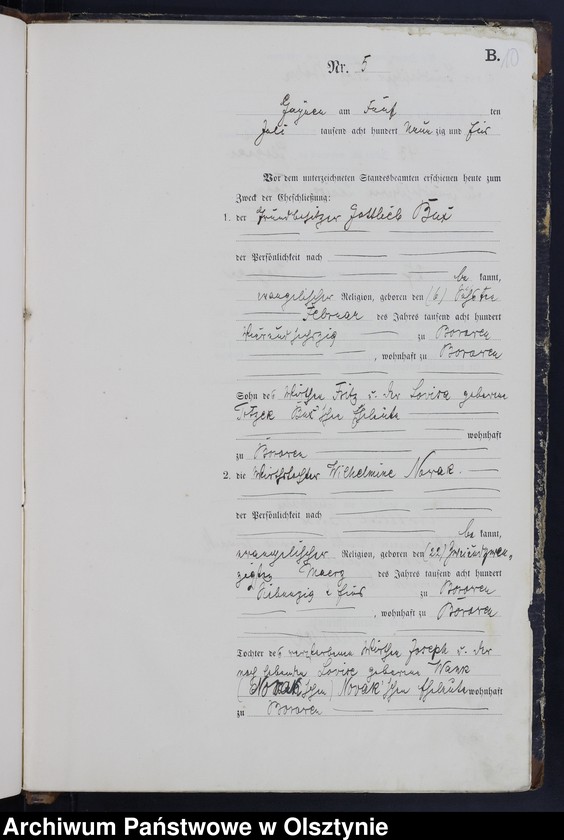 B.
10
Nr. 5
am Fünf ten
Juli tausend acht hundert neun zig und
Vor dem unterzeichneten Standesbeamten erschienen heute zum
Zweck der Eheschließung:
1. der Grundbesitzer Gottlieb Bux
der Persönlichkeit nach
be kannt,
evangelischer Religion, geboren den (6) Sechsten
Februar des Jahres tausend acht hundert
zu Bororen
, wohnhaft zu Bororen
Sohn des Wirthen Fritz u. der Lovisa geborene
Eheleute
wohnhaft
zu Bororen
2. die Wirthstochter Wilhelmine Nowak.
der Persönlichkeit nach
be kannt,
evangelischer Religion, geboren den (22) Zweiundzwan-
zigsten Maerz des Jahres tausend acht hundert
Siebenzig zu Bororen
, wohnhaft zu Bororen
Tochter des verstorbenen Wirthen Joseph u. der
noch lebenden Lovise geborene
Nowak'schen Eheleute wohnhaft
zu Bororen
Archiwum Państwowe w Olsztynie